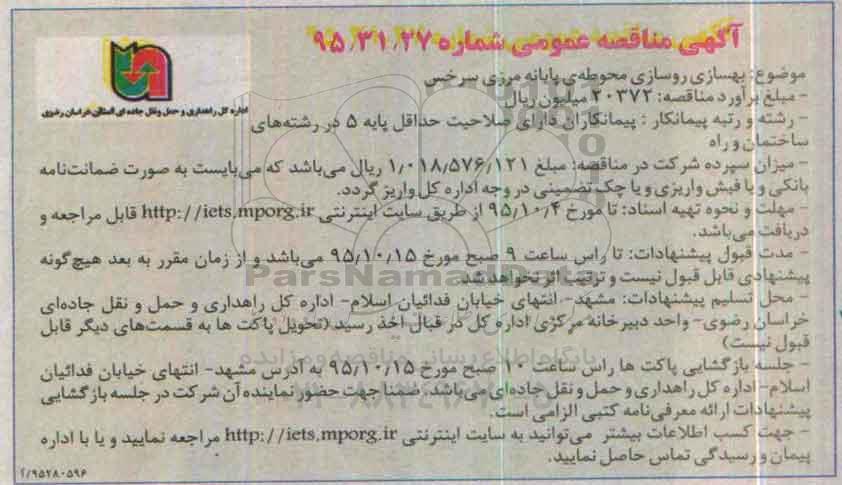 آگهی مناقصه عمومی شماره ۹۵٫۳۱٫۲۷
اداره کل راهداری و حمل ونقل جاده ای استان خراسان رضوی
موضوع: بهسازی روسازی محوطه‌ی پایانه مرزی سرخس
- مبلغ برآورد مناقصه: ۲۰۳۷۲ میلیون ریال
- رشته و رتبه پیمانکار : پیمانکاران دارای صلاحیت حداقل پایه ۵ در رشته‌های
ساختمان و راه
- میزان سپرده شرکت در مناقصه: مبلغ ۱٫۰۱۸٫۵۷۶٫۱۲۱ ریال می‌باشد که می‌بایست به صورت ضمانت‌نامه
بانکی و یا فیش واریزی و یا چک تضمینی در وجه اداره کل واریز گردد.
- مهلت و نحوه تهیه اسناد: تا مورخ ۹۵٫۱۰٫۴ از طریق سایت اینترنتی http://iets.mporg.ir قابل مراجعه و
دریافت می‌باشد.
- مدت قبول پیشنهادات: تا راس ساعت ۹ صبح مورخ ۹۵٫۱۰٫۱۵ می‌باشد و از زمان مقرر به بعد هیچ‌گونه
پیشنهادی قابل قبول نیست و ترتیب اثر نخواهد شد
ParsNamadData
- محل تسلیم پیشنهادات: مشهد- انتهای خیابان فدائیان اسلام- اداره کل راهداری و حمل و نقل جاده‌ای
خراسان رضوی- واحد دبیرخانه مرکزی اداره کل در قبال اخذ رسید (تحویل پاکت ها به قسمت‌های دیگر قابل
قبول نیست)
پایگاه اطلاع رسانی مناقصه و مزایده
- جلسه بازگشایی پاکت ها راس ساعت ۱۰ صبح مورخ ۹۵٫۱۰٫۱۵ به آدرس مشهد- انتهای خیابان فدائیان
اسلام- اداره کل راهداری و حمل و نقل جاده‌ای می‌باشد، ضمنا جهت حضور نماینده آن شرکت در جلسه بازگشایی
پیشنهادات ارائه معرفی‌نامه کتبی الزامی است.
- جهت کسب اطلاعات بیشتر می‌توانید به سایت اینترنتی http://iets.mporg.ir مراجعه نمایید و یا با اداره
پیمان و رسیدگی تماس حاصل نمایید.
۹۵۲۸۰۵۹۶/آ